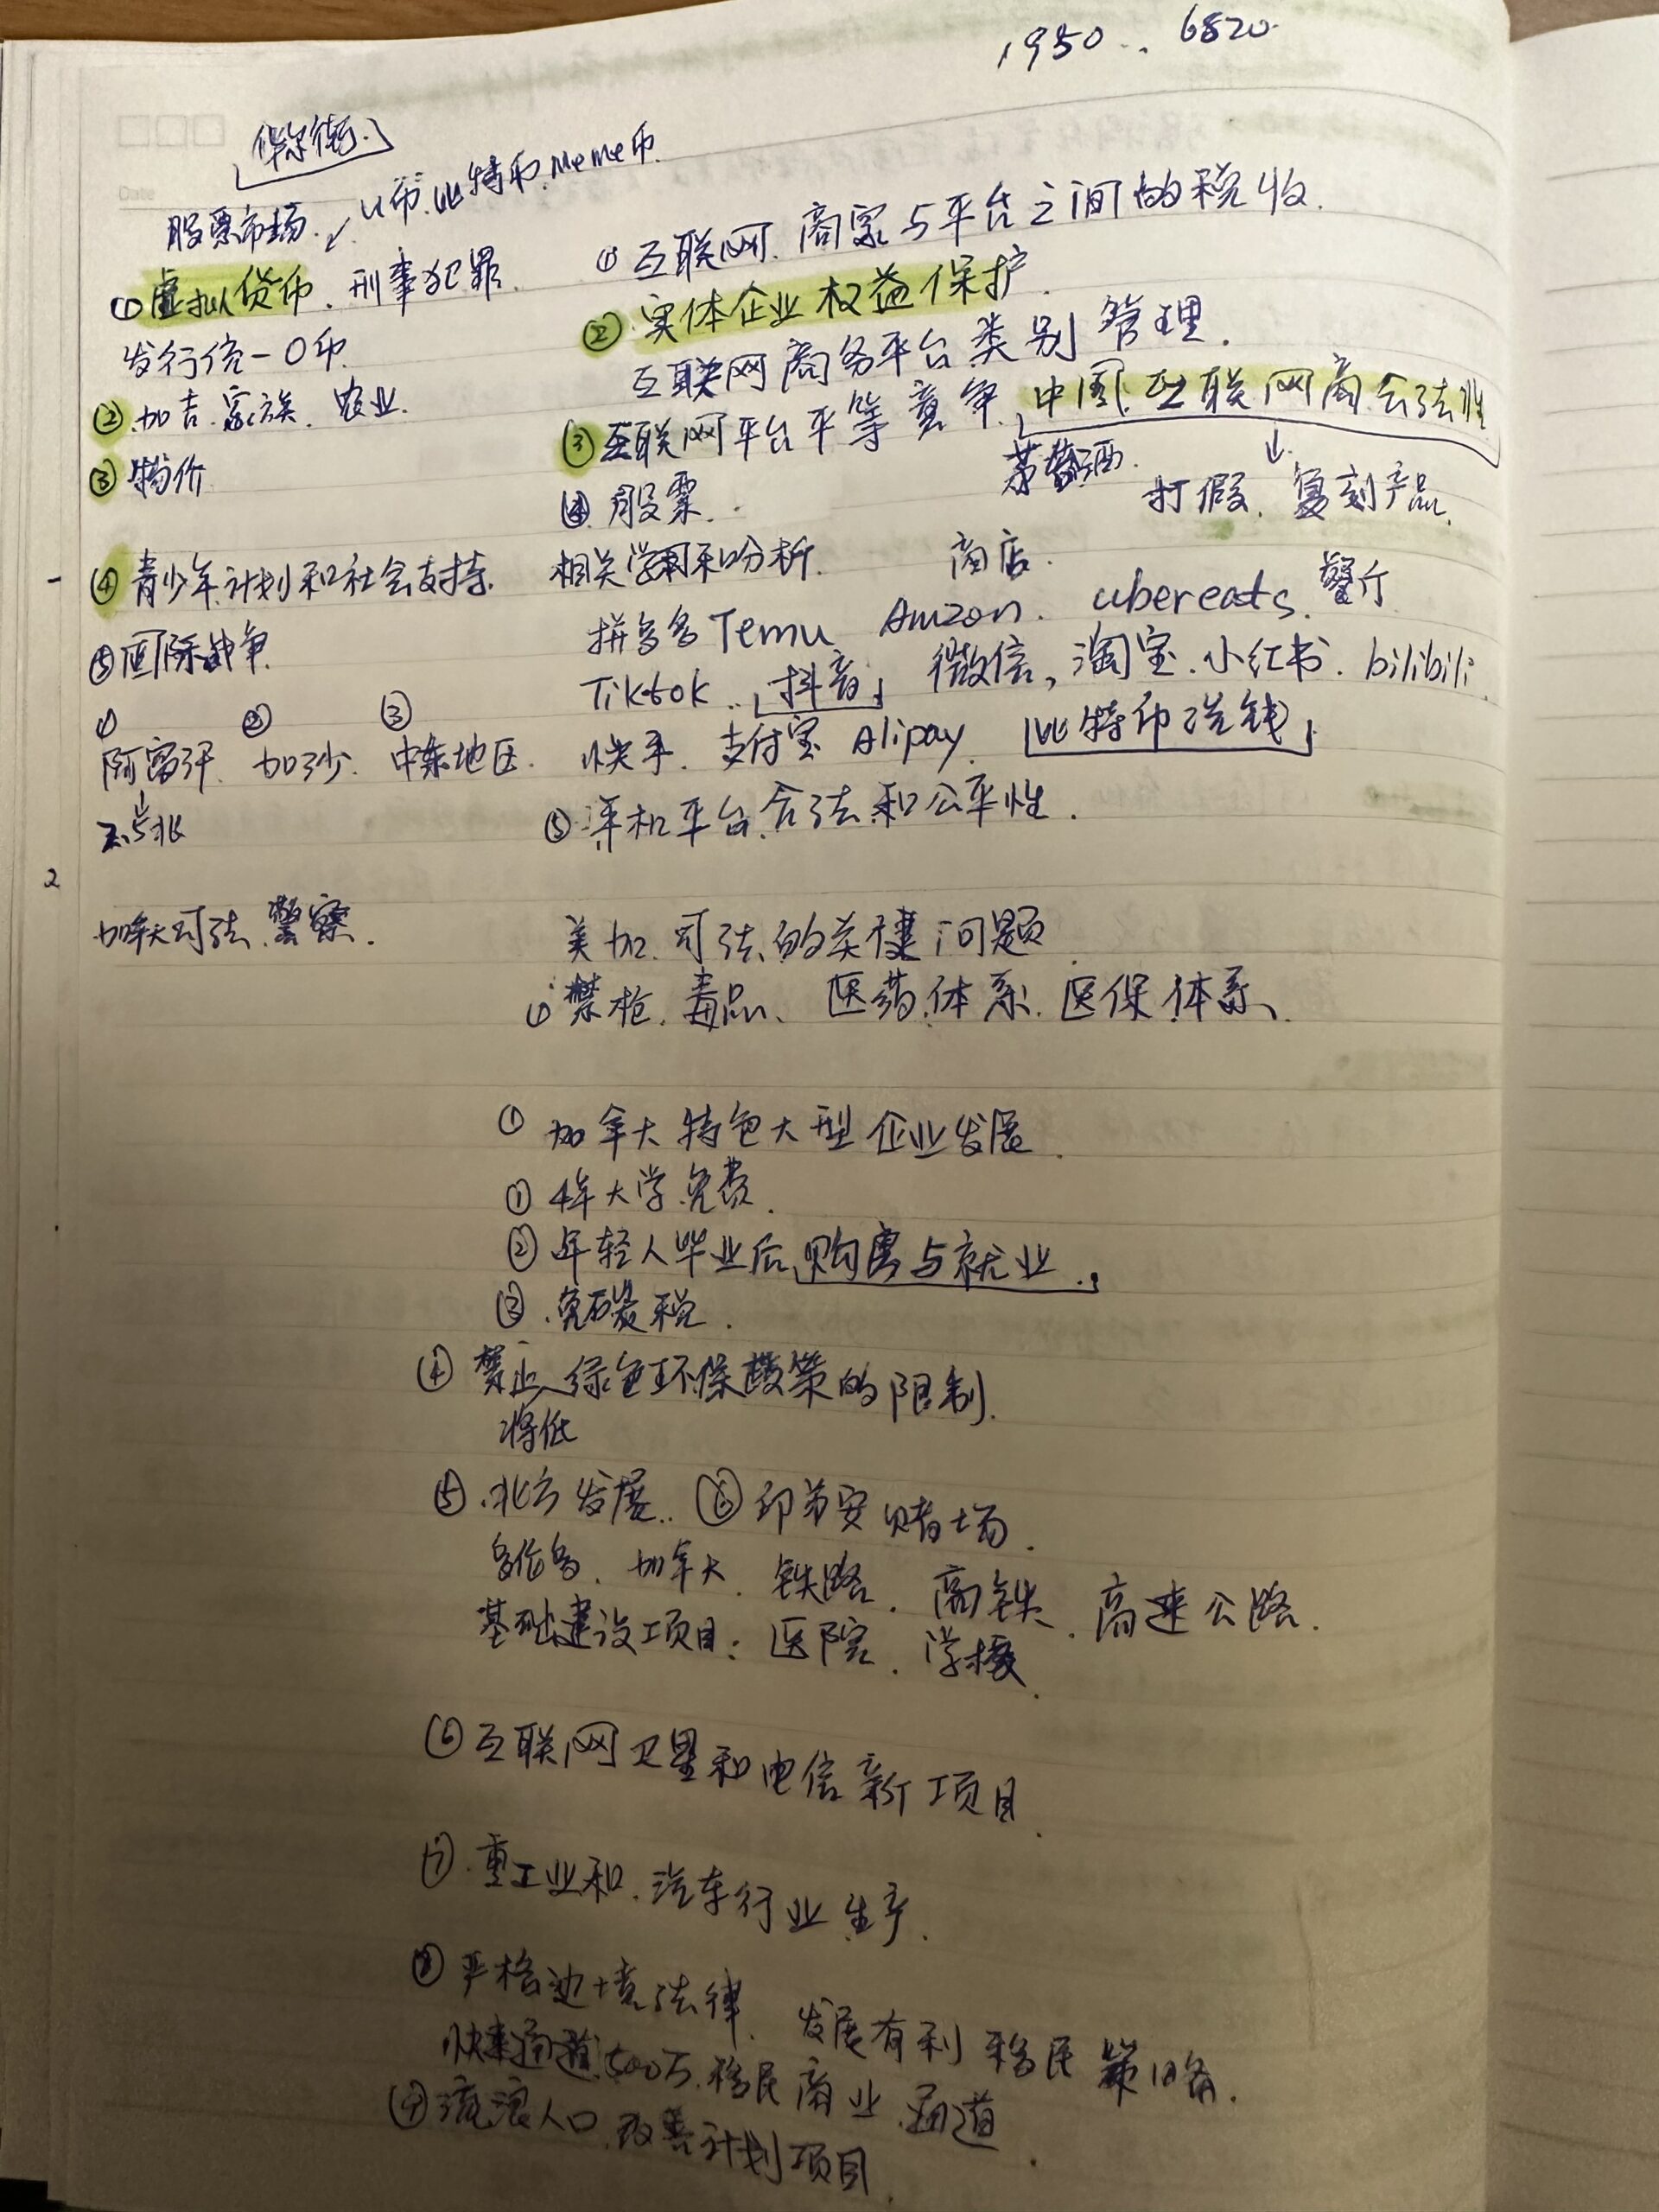 1950 .. 6820
Date
华尔街.
股票市场. U币.比特币.Meme币.
①虚拟货币. 刑事犯罪.
发行统一O币.
②.加吉.家族. 农业.
③物价
④青少年计划和社会支持.
⑤国际战争
① ② ③
阿富汗. 加沙. 中东地区.
加拿大司法.警察.
① 互联网.商家与平台之间的税收.
② 实体企业权益保护.
互联网商务平台类别管理.
③互联网平台平等竞争.中国.互联网商会法性
打假. 复刻产品.
④ 股票..
相关学习和分析. 商店.
拼多多Temu Amzon. ubereats. 餐厅
Tiktok.. 抖音 微信, 淘宝.小红书.bilibili.
快手. 支付宝 Alipay. 比特币洗钱.
⑤.洋机平台.合法和公平性.
2
美加.司法的关键问题.
① 禁枪. 毒品、医药体系.医保体系、
① 加拿大特色大型企业发展.
① 4年大学免费.
② 年轻人毕业后.购房与就业..
③.免碳税.
④ 禁止 绿色环保政策的限制.
降低
⑤.北方发展.. ⑥印第安赌场.
多伦多. 加拿大. 铁路. 高铁. 高速公路.
基础建设项目: 医院. 学校.
⑥ 互联网卫星和电信新项目.
⑦.重工业和.汽车行业生产.
⑧ 严格边境法律. 发展有利移民策略.
快速通道.500万.移民商业.通道.
⑨流浪人口.改善计划项目.